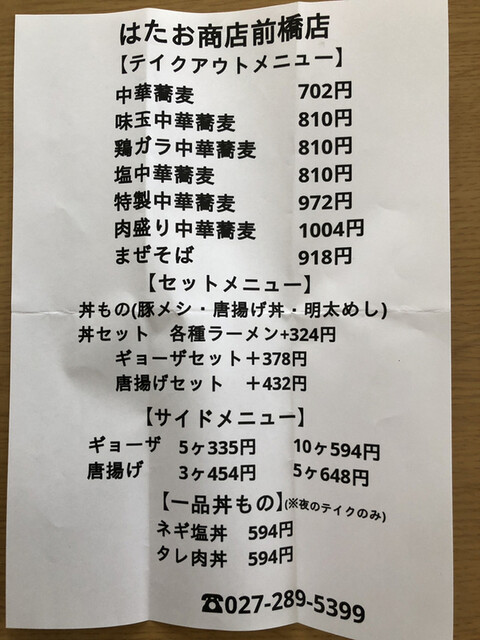 はたお商店前橋店
【テイクアウトメニュー】
中華蕎麦 702円
味玉中華蕎麦 810円
鶏ガラ中華蕎麦 810円
塩中華蕎麦 810円
特製中華蕎麦 972円
肉盛り中華蕎麦 1004円
まぜそば 918円
【セットメニュー】
丼もの(豚メシ・唐揚げ丼・明太めし)
丼セット 各種ラーメン+324円
ギョーザセット＋378円
唐揚げセット ＋432円
【サイドメニュー】
ギョーザ 5ヶ335円 10ヶ594円
唐揚げ 3ヶ454円 5ヶ648円
【一品丼もの】(※夜のテイクのみ)
ネギ塩丼 594円
タレ肉丼 594円
☎027-289-5399